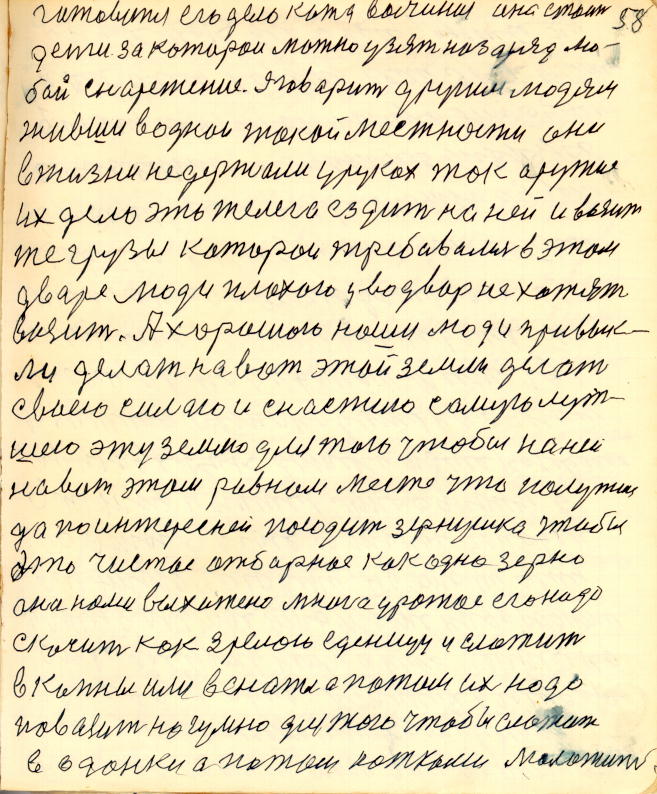 58
готовится его дело когда воичина она стоит
дети. за которой можно узят на заряд лю-
бой снаретение. Я говарит другим людям
живши водной такой местности они
в жизни недержали уруках ток аружие
их дело это телега ездит на ней и возит
те грузы которои требавался в этом
дваре люди плохого уводвор не хотят
возит. А хорошого наши люди привык-
ли делат на вот этой земли делат
своею силаю и снастию самую лут-
шею эту землю для того чтобы на ней
на вот этом равном месте что получше
да поинтересней посодит зернушка чтобы
это чистое отборное как одно зерно
она нами выхожено много урожое его надо
скочит как зрелою еденицу и сложит
в копны или в снапы а потом их надо
повазит на гумно для того чтобы сложит
в одонки а потом катками молотит